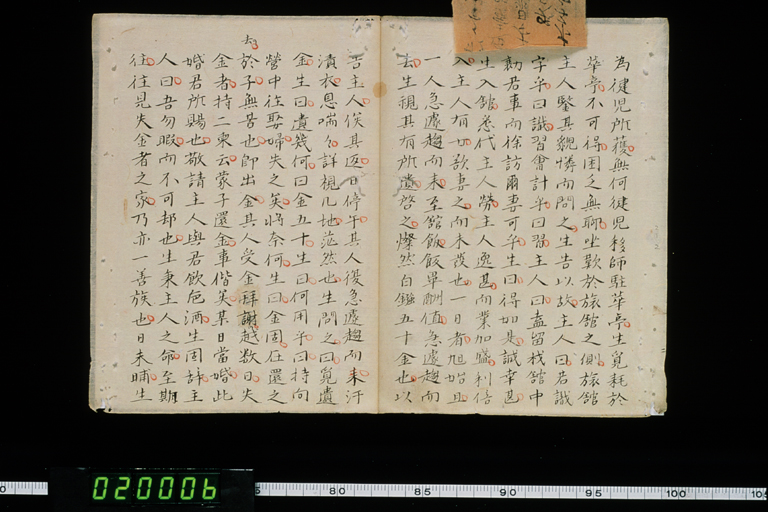 為健児所獲無何健児移師駐華亭生覓耗於
華亭不可得困乏無聊坐歎於旅舘之側旅舘
主人鑒其貌憐而問之生告以故主人曰君識
字乎曰識習會計乎曰習主人曰盍留我舘中
勷君事而徐訪爾妻可乎生曰得如是誠幸甚
生入舘悉代主人勞主人逸甚而業加盛利倍
入主人有切敬妻之而未發也一日者旭始旦
一人急遽趨而来至舘飯飯畢酬值急遽趨而
去生視其有所遺啓之燦然白鏹五十金也以
告主人俟其返日停午其人復急遽趨而来汗
漬衣息喘々詳視几地茫然也生問之曰覓遺
金生曰遺幾何曰金五十生曰何用乎曰持向
營中往娶婦失之矣將奈何生曰金固在還之
於子無苦也即出金其人受金拜謝越数日失
去
金者持二柬云蒙子還金事偕矣某日當婚此
婚君所賜也敬請主人與君飲卮酒生固辞主
人曰吾勿暇而不可却也生秉主人之命至期
往往見失金者之家乃亦一善族也日未晡生
020006
80 85 90 95 100